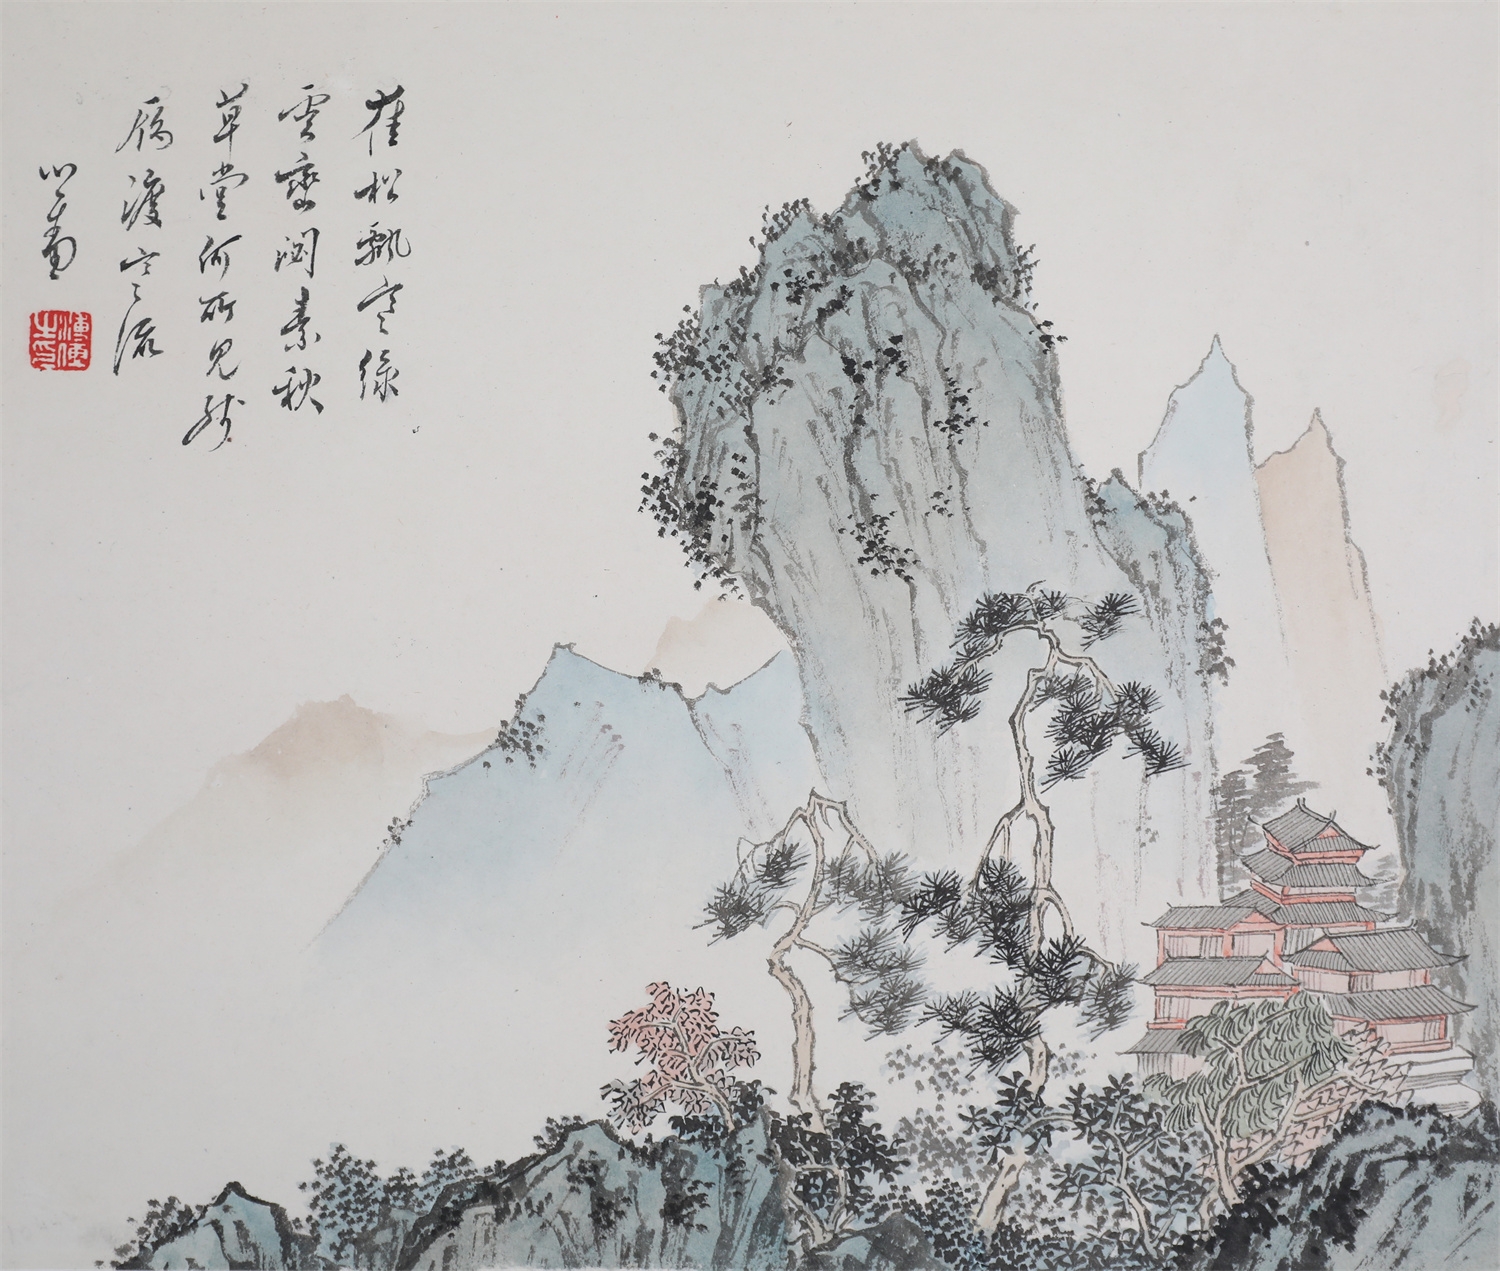 崖松飄寒綠
雲壑澗素秋
草堂何所見
殘雁渡寒流
心畬
溥儒之印